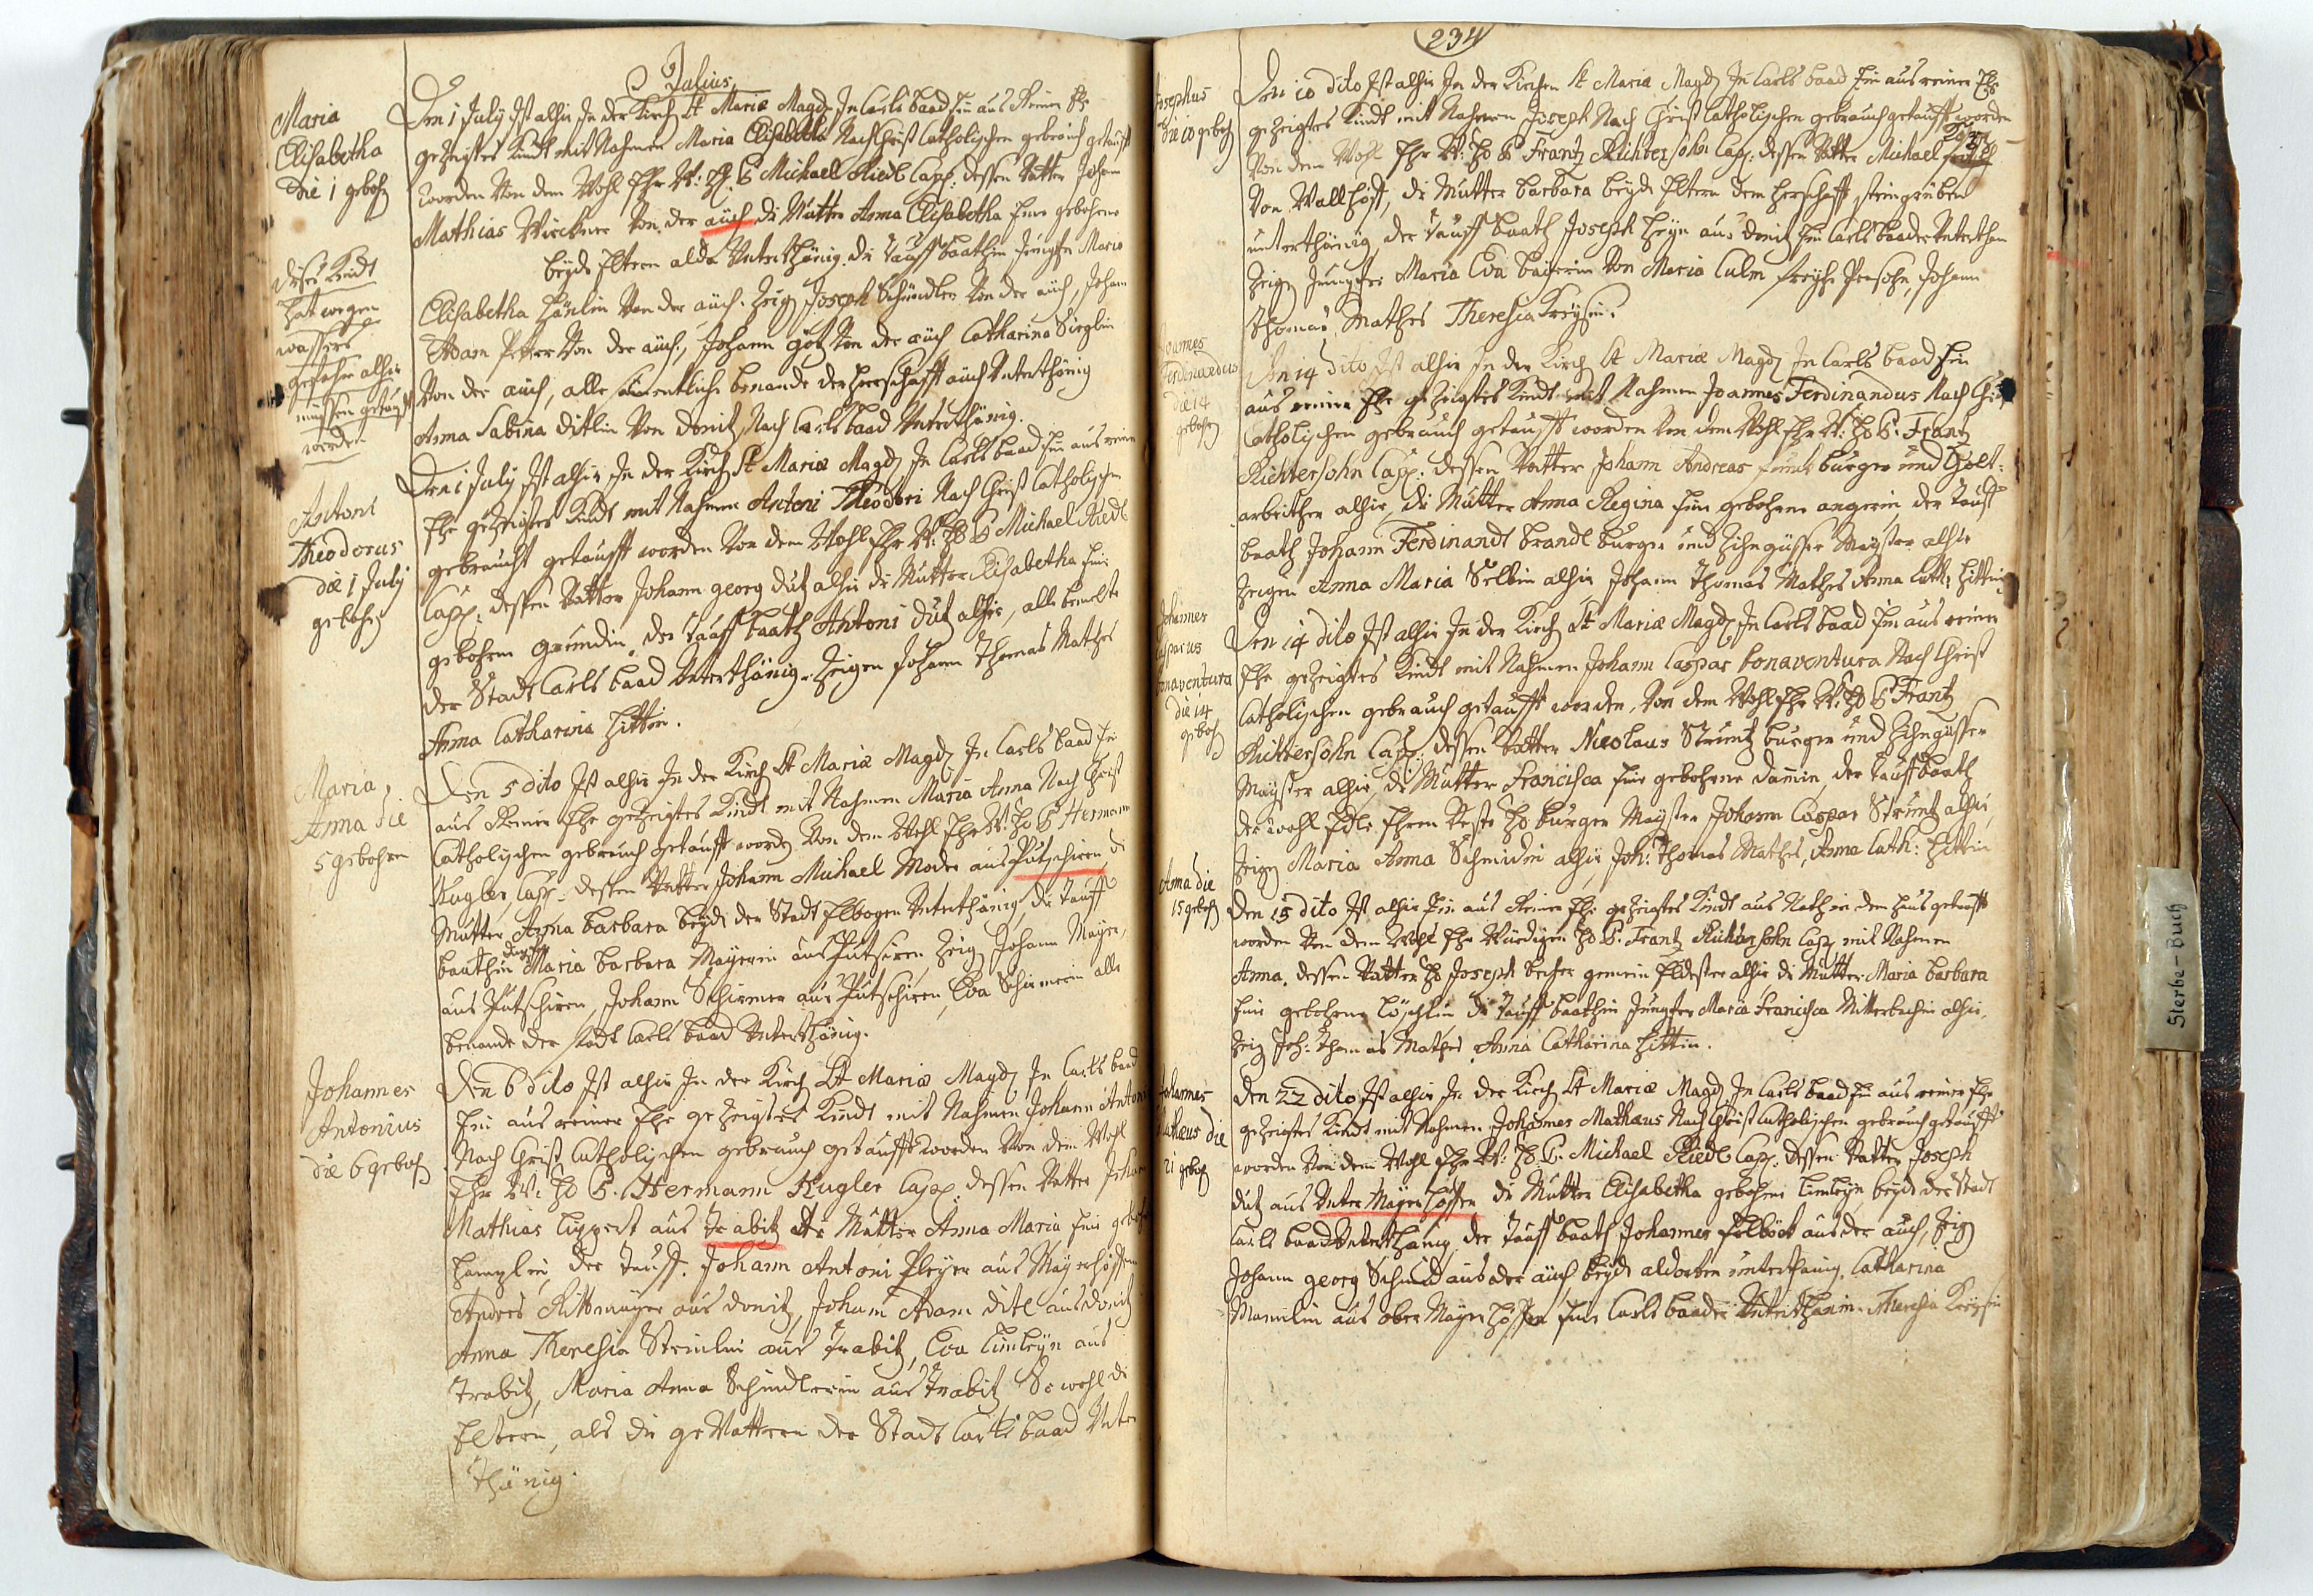 Julius
Maria
Elisabetha
die 1 geboh
Den 1 July Ist alhir In der Kirch St Mariæ Magd In Carls baad Ein aus Reiner Ehe
gezeigtes Kindt mit Nahmen Maria Elisabetha Nach Christ Catholischen gebrauch getaufft
worden Von dem Wohl Ehr W: H: P Michael Riedl Capp: dessen Vatter Johann
Mathias Wirckner Von der aüch di Mutter Anna Elisabetha Eine gebohrne
beyde Eltern alda Unterthänig. di Tauff baathin Jungfer Maria
Elisabetha Von der aüch. Zeig Joseph Schindler Von der aüch, Johann
Adam Von der aüch, Johann götz Von der aüch Catharina
Von der aüch, alle benande der Herrschafft aüch Unterthänig
Anna Sabina ditlin Von donitz, Nach Carls baad Unterthänig.
dises Kindt
hat wegen
wassers
gefahr alhir
müssen getaufft
werden
Antoni
Theodorus
die 1 July
gebohr
Den 1 July Ist alhir In der Kirch St Mariæ Magd In Carls baad Ein aus reiner
Ehe gezeigtes Kindt mit Nahmen Antoni Theodori Nach Christ Catholischen
gebraucht getaufft worden Von dem Wohl Ehr W: H: P Michael Riedl
Capp: dessen Vatter Johann georg dutz alhir di Mutter Elisabetha Eine
gebohrne gründin, der Tauff baath Antoni dutz alhir, alle benelte
der Stadt Carls baad Unterthänig. Zeigen Johann Thomas Mathes
Anna Catharina Hittin.
Maria
Anna die
5 gebohrn
Den 5 dito Ist alhir In der Kirch St Mariæ Magd In Carls baad Ein
aus Reiner Ehe gezeigtes Kindt mit Nahmen Maria Anna Nach Christ
Catholischen gebrauch getaufft word Von dem Wohl Ehr W: H: P Hermann
Kugler Capp: dessen Vatter Johann Michael Moder aus Putschiren di
Mutter Anna barbara beyde der Stadt Elbogen Unterthänig, di Tauff
baathin Maria barbara Mayerin aus Putsciren Zeig Johann Mayer,
aus Putschiren, Johann Schirmer aus Putschiren, Eva Schirmerin alle
benande der Stadt Carls baad Unterthänig.
Johannes
Antonius
die 6 geboh
Den 6 dito Ist alhir In der Kirch St Mariæ Magd In Carls baad
Ein aus reiner Ehe gezeigtes Kindt mit Nahmen Johann Antoni
Nach Christ Catholischen gebrauch getaufft worden Von dem Wohl
Ehr W: H: P. Hermann Kugler Capp: dessen Vatter Johann
Mathias Lippert aus Trabitz di Mutter Anna Maria Eine geboh
der Tauff. Johann Antoni Pleyer aus Mayerhöffen
Andres Rittmayer aus donitz, Johann Adam ditl aus donitz
Anna Theresia aus Trabitz, Eva aus
Trabitz, Maria Anna Schindlerin aus Trabitz So wohl di
Eltern, als die gevattern der Stadt Carls baad Unter
thänig.
234
Josephus
die 10 geboh
Den 10 dito Ist alhir In der Kirchen St Mariæ Magd In Carls baad Ein aus reiner Ehe
gezeigtes Kindt mit Nahmen Joseph Nach Christ Catholischen gebrauch getaufft worden
Von dem Wohl Ehr W: H: P Frantz Richtersohn Capp: dessen Vatter Michael
Von Wallhöff, di Mutter barbara beyde Eltern dem Herschafft steingrüben
unterthänig der Tauff baath Joseph aus donitz Ein Carls baader Unterthan
Zeig Jungfer Maria Eva Von Maria Culm Persohn, Johann
Thomas Mathes Theresia Kreysin.
Joannes
Ferdinandus
die 14
gebohr
Den 14 dito Ist alhir In der Kirch St Mariæ Magd In Carls baad Ein
aus reiner Ehe gezeigtes Kindt mit Nahmen Joannes Ferdinandus Nach Christ
Catholischen gebrauch getaufft worden Von dem Wohl Ehr W: H: P. Frantz
Richtersohn Capp: dessen Vatter Johann Andreas burger und
arbeither alhir, di Mutter Anna Regina Eine gebohrne angerin der Tauff
baath Johann Ferdinandt brandl burger und Zihngüsser Mayster alhir
Zeigen Anna Maria Selbin alhir Johann Thomas Mathes Anna Cath: Hittin
Johannes
Casparus
bonaventura
die 14
geboh
Den 14 dito Ist alhir In der Kirch St Mariæ Magd In Carls baad Ein aus reiner
Ehe gezeigtes Kindt mit Nahmen Johann Caspar bonaventura Nach Christ
Catholischen gebrauch getaufft worden, Von dem Wohl Ehr W: H: P Frantz
Richtersohn Capp: dessen Vatter Nicolaus Strüntz burger und Zihngüsser
Mayster alhir, di Mutter Francisca Eine gebohrne dämin, der Tauff baath
der wohl Edle Ehren Veste H: burger Mayster Johann Caspar Strüntz alhir,
Zeig Maria Anna Schmidin alhir, Joh: Thomas Mathes, Anna Cath: Hittin
Anna die
15 geboh
Den 15 dito Ist alhir Ein aus Reiner Ehe gezeigtes Kindt aus Noth in dem Haus getaufft
worden Von dem Wohl Ehr Würdigen H: P. Frantz Richtersohn Capp mit Nahmen
Anna. dessen Vatter H: Joseph becher gemein Eldester alhir di Mutter Maria barbara
Eine gebohrne Löschlin di Tauff baathin Jungfer Maria Francisca Mitterbachin alhir,
Zeig Joh: Thomas Mathes Anna Catharina Hittin.
Johannes
Mathæus die
21 geboh
Den 22 dito Ist alhir In der Kirch St Mariæ Magd In Carls baad Ein aus reiner Ehe
gezeigtes Kindt mit Nahmen Johannes Mathæus Nach Christ Catholischen gebrauch getaufft
worden Von dem Wohl Ehr W: H: P. Michael Riedl Capp: dessen Vatter Joseph
dutz aus Unter Mayerhöffen di Mutter Elisabetha gebohrne beyde der Stadt
Carls baad Unterthänig, der Tauff baath Johannes aus der aüch, Zeig
Johann georg Schmid aus der aüch beyde aldorten unterthänig. Catharina
Manlin aus ober Mayerhöffen Eine Carls baader Unterthanin. Theresia Kreysin
Sterbe-Buch